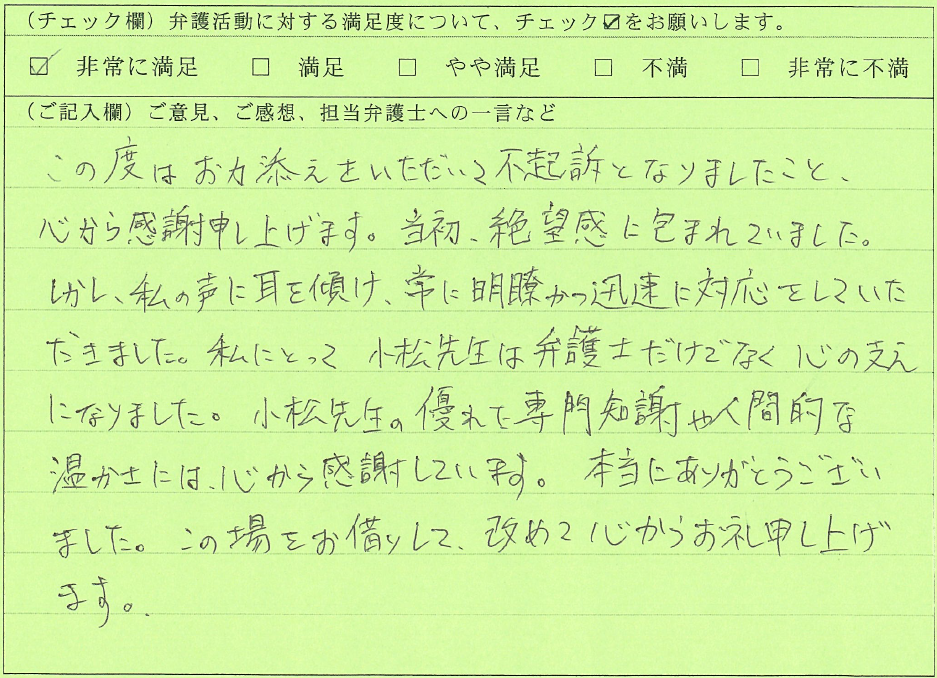 (チェック欄)弁護活動に対する満足度について、チェック☑をお願いします。
☑ 非常に満足 □ 満足 □ やや満足 □ 不満 □ 非常に不満
(ご記入欄)ご意見、ご感想、担当弁護士への一言など
この度はお力添えをいただいて不起訴となりましたこと、
心から感謝申し上げます。当初、絶望感に包まれていました。
しかし、私の声に耳を傾け、常に明瞭かつ迅速に対応をしていた
だきました。私にとって 小松先生は弁護士だけでなく心の支え
になりました。小松先生の優れた専門知謝や人間的な
温かさには、心から感謝しています。本当にありがとうござい
ました。この場をお借りして、改めて心からお礼申し上げ
ます。